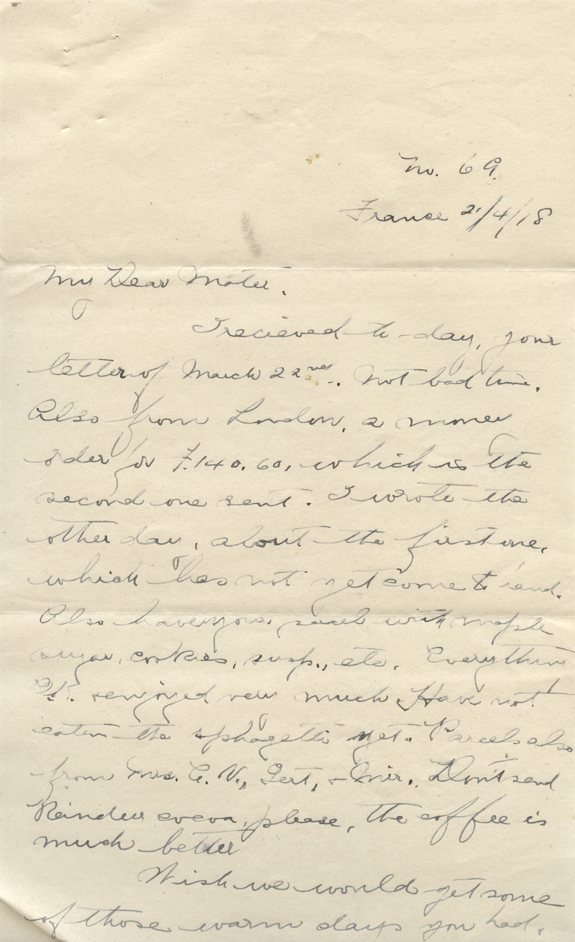 No. 69.
France 21/4/18
My Dear Mater.
I recieved to-day, your
letter of March 22nd. Not bad time.
Also from London, a money
order for F.140.60, which is the
second one sent. I wrote the
other day, about the first one,
which has not yet come to hand.
Also have your parcel with maple
sugar, cookies, susp., etc. Everything
enjoyed very much. Have not
eaten the sphagetti yet. Parcels also
from Mrs. C. V., Gert, + Mir. Don't send
Reindeer cocoa, please, the coffee is
much better
Wish we would get some
of those warm days you had.